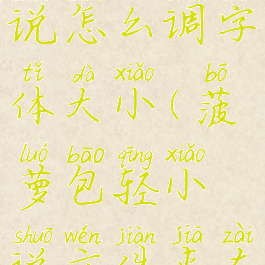 说怎么调字
tǐ dà xiǎo bō
体大小(菠
luó bāo qīng xiǎo
萝包轻小
shuō wén jiàn jiā zài
说文件夹在